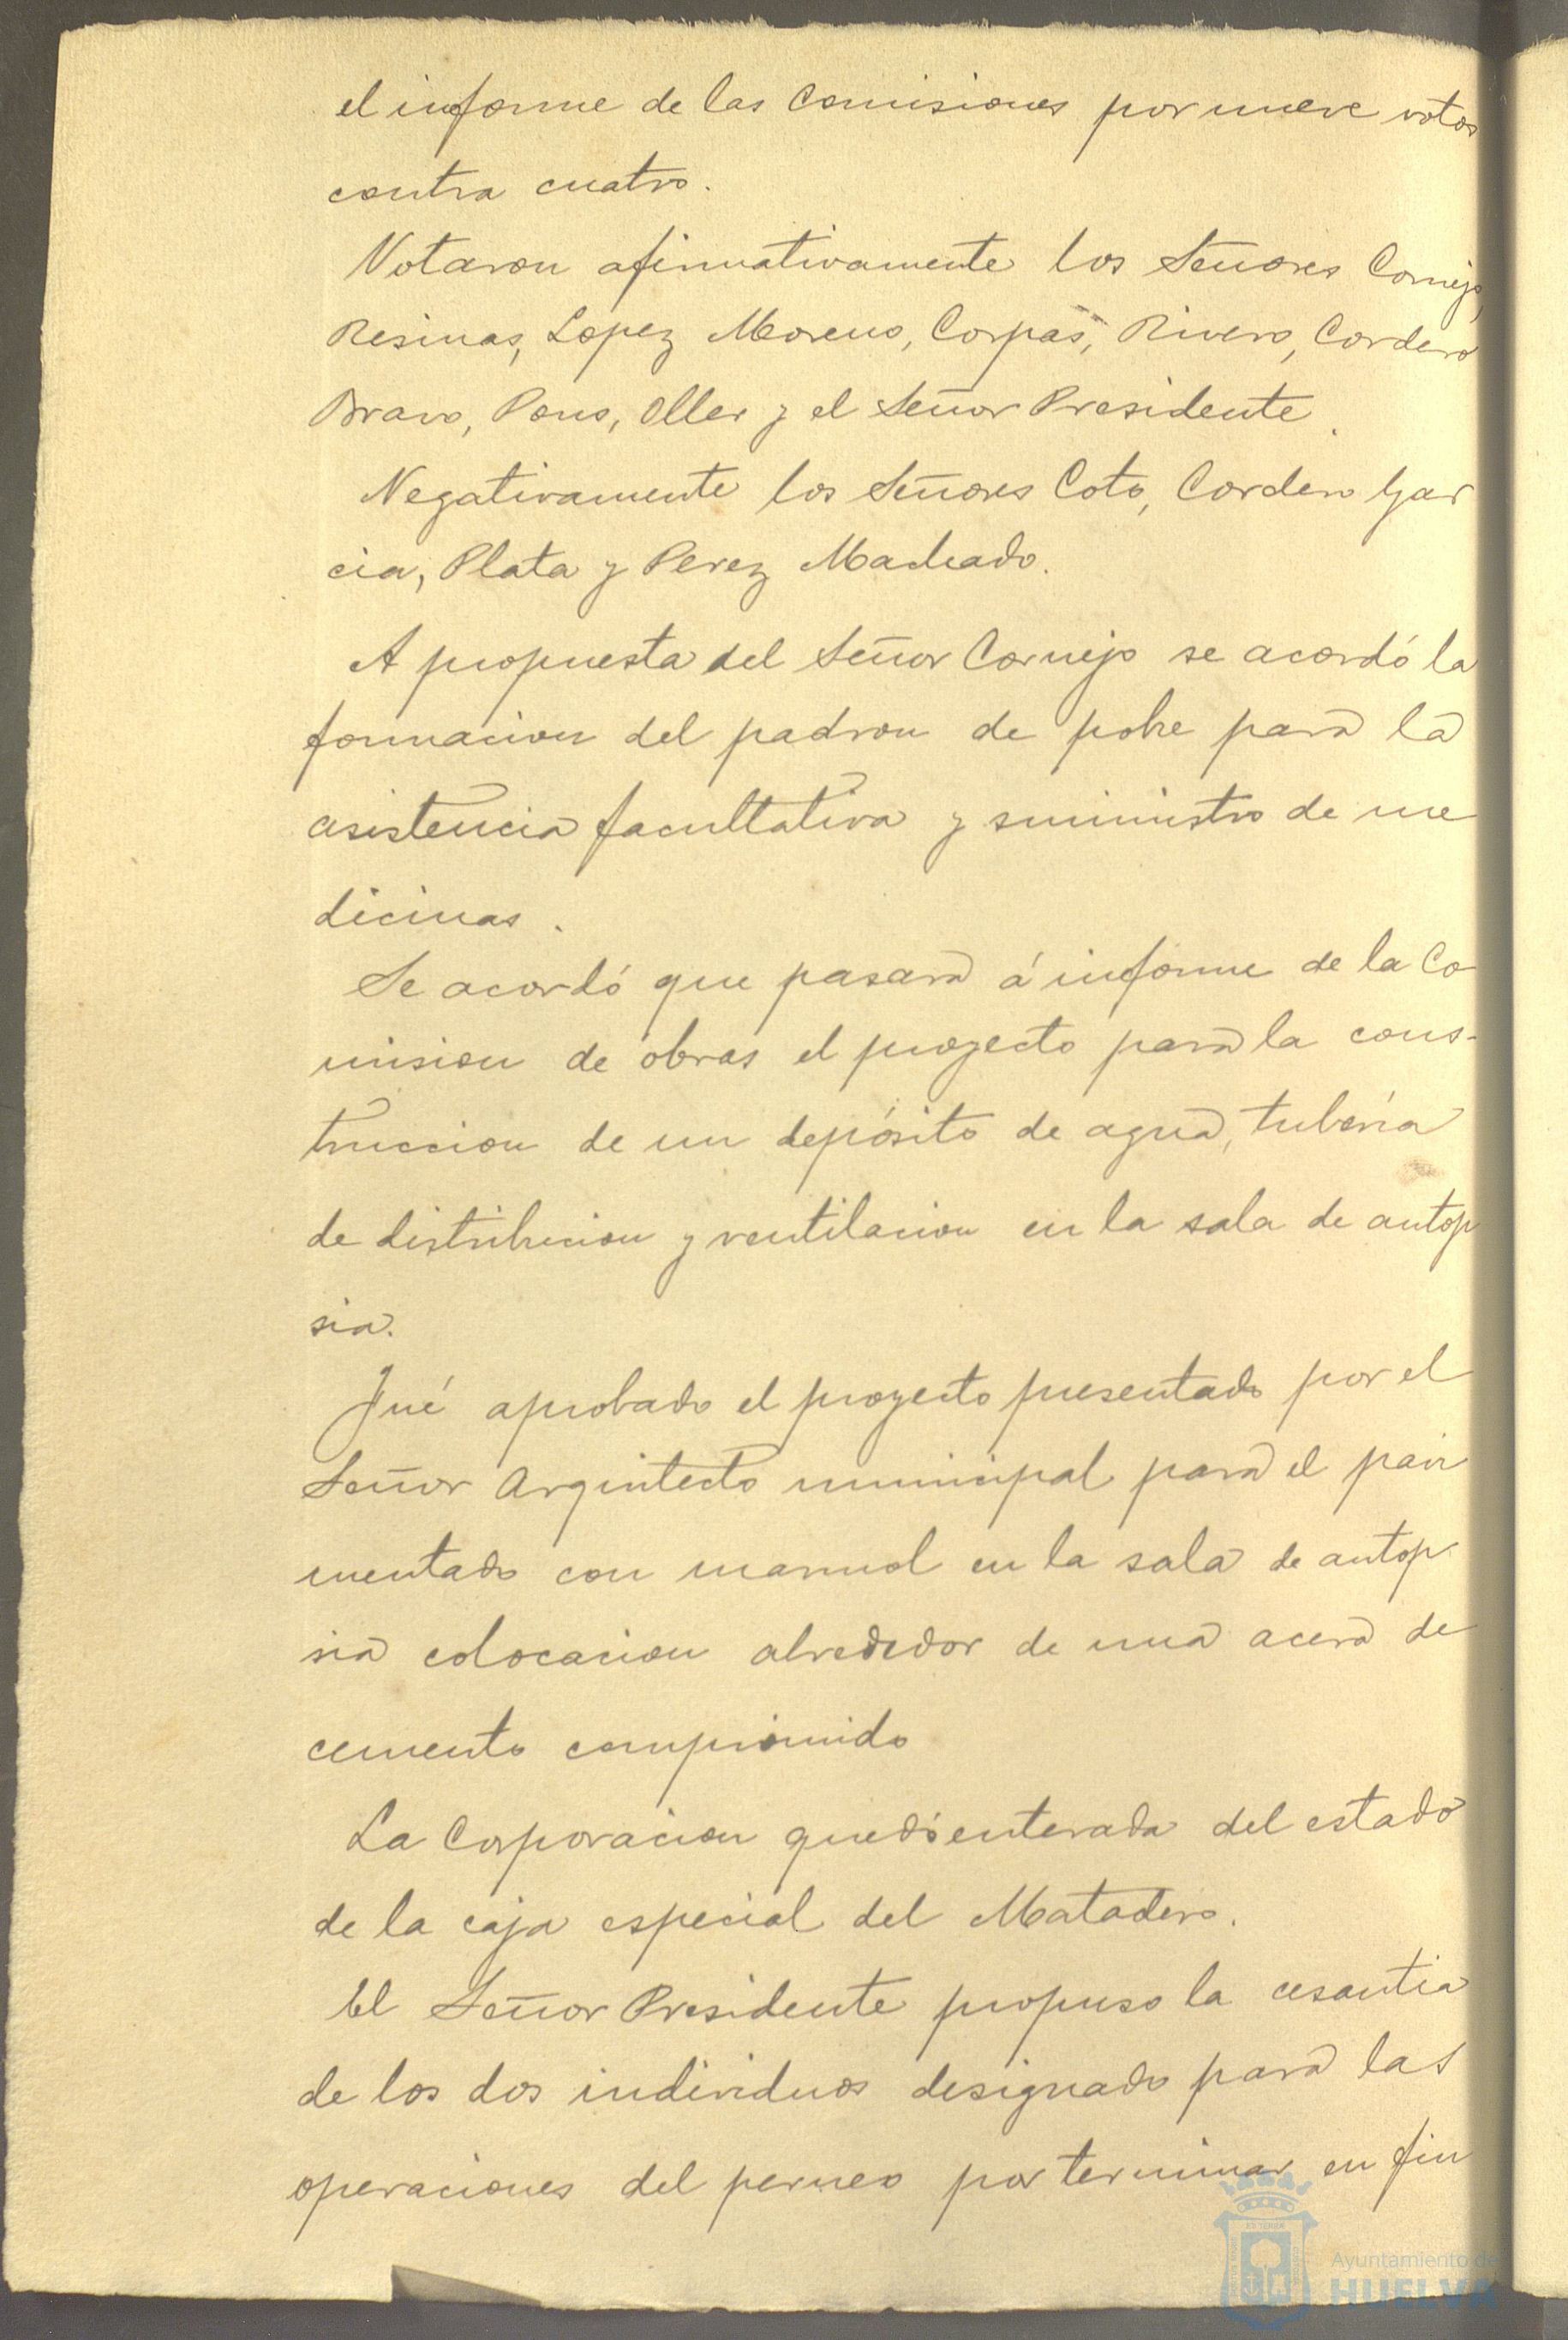 el informe de las Comisiones por nueve votos
contra cuatro.
Votaron afirmativamente los Señores Cornejo,
Resinas, Lopez Moreno, Corpas, Rivero, Cordero
Bravo, Pons, Oller y el Señor Presidente.
Negativamente los Señores Coto, Cordero Gar
cia, Plata y Perez Machado.
A propuesta del Señor Cornejo se acordó la
formacion del padron de pobre para la
asistencia facultativa y suministro de me
dicinas.
Se acordó que pasara á informe de la Co
mision de obras el proyecto para la cons-
truccion de un depósito de agua, tubería
de distribucion y ventilacion en la sala de autop
sia.
Fué aprobado el proyecto presentado por el
Señor Arquitecto municipal para el pavi
mentado con marmol en la sala de autop
sia colocacion alrededor de una acera de
cemento comprimido
La Corporacion quedó enterada del estado
de la caja especial del Matadero.
El Señor Presidente propuso la cesantia
de los dos individuos designado para las
operaciones del perneo por terminar en fin
Ayuntamiento de
HUELVA